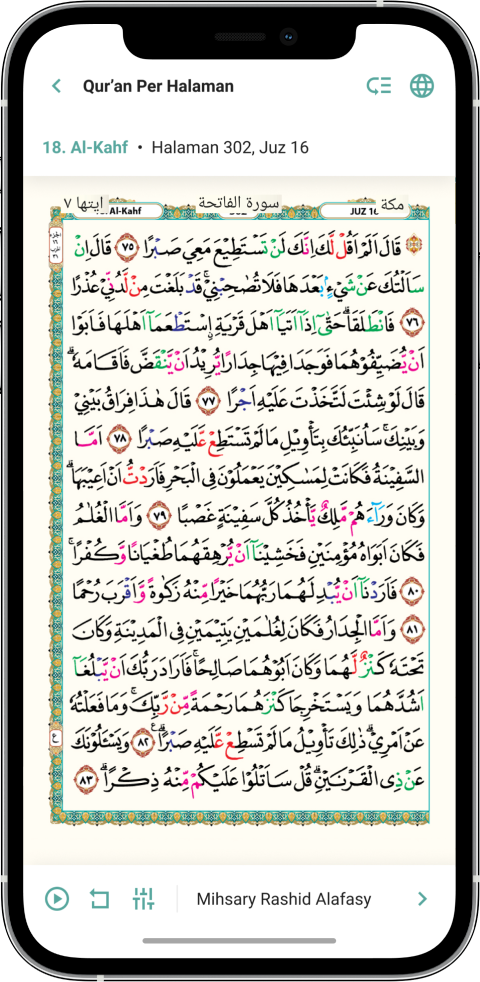 Qur'an Per Halaman
18. Al-Kahf • Halaman 302, Juz 16
ايتها ٧ Al-Kahf سورة الفاتحة JUZ 16 مكة
۞ قَالَ اَلَمْ اَقُلْ لَّكَ اِنَّكَ لَنْ تَسْتَطِيْعَ مَعِيَ صَبْرًا ٧٥ قَالَ اِنْ
سَاَلْتُكَ عَنْ شَيْءٍۢ بَعْدَهَا فَلَا تُصٰحِبْنِيْۚ قَدْ بَلَغْتَ مِنْ لَّدُنِّيْ عُذْرًا
٧٦ فَانْطَلَقَاۗ حَتّٰىٓ اِذَآ اَتَيَآ اَهْلَ قَرْيَةِ ِۨاسْتَطْعَمَآ اَهْلَهَا فَاَبَوْا
اَنْ يُّضَيِّفُوْهُمَا فَوَجَدَا فِيْهَا جِدَارًا يُّرِيْدُ اَنْ يَّنْقَضَّ فَاَقَامَهٗۗ
قَالَ لَوْ شِئْتَ لَتَّخَذْتَ عَلَيْهِ اَجْرًا ٧٧ قَالَ هٰذَا فِرَاقُ بَيْنِيْ
وَبَيْنِكَۚ سَاُنَبِّئُكَ بِتَأْوِيْلِ مَا لَمْ تَسْتَطِعْ عَّلَيْهِ صَبْرًا ٧٨ اَمَّا
السَّفِيْنَةُ فَكَانَتْ لِمَسٰكِيْنَ يَعْمَلُوْنَ فِى الْبَحْرِ فَاَرَدْتُّ اَنْ اَعِيْبَهَاۗ
وَكَانَ وَرَاۤءَهُمْ مَّلِكٌ يَّأْخُذُ كُلَّ سَفِيْنَةٍ غَصْبًا ٧٩ وَاَمَّا الْغُلٰمُ
فَكَانَ اَبَوَاهُ مُؤْمِنَيْنِ فَخَشِيْنَآ اَنْ يُّرْهِقَهُمَا طُغْيَانًا وَّكُفْرًاۚ
٨٠ فَاَرَدْنَآ اَنْ يُّبْدِلَهُمَا رَبُّهُمَا خَيْرًا مِّنْهُ زَكٰوةً وَّاَقْرَبَ رُحْمًا
٨١ وَاَمَّا الْجِدَارُ فَكَانَ لِغُلٰمَيْنِ يَتِيْمَيْنِ فِى الْمَدِيْنَةِ وَكَانَ
تَحْتَهٗ كَنْزٌ لَّهُمَا وَكَانَ اَبُوْهُمَا صَالِحًاۚ فَاَرَادَ رَبُّكَ اَنْ يَّبْلُغَآ
اَشُدَّهُمَا وَيَسْتَخْرِجَا كَنْزَهُمَا رَحْمَةً مِّنْ رَّبِّكَۚ وَمَا فَعَلْتُهٗ
عَنْ اَمْرِيْۗ ذٰلِكَ تَأْوِيْلُ مَا لَمْ تَسْطِعْ عَّلَيْهِ صَبْرًاۗ ٨٢ وَيَسْـَٔلُوْنَكَ
عَنْ ذِى الْقَرْنَيْنِۗ قُلْ سَاَتْلُوْا عَلَيْكُمْ مِّنْهُ ذِكْرًاۗ ٨٣
Mihsary Rashid Alafasy